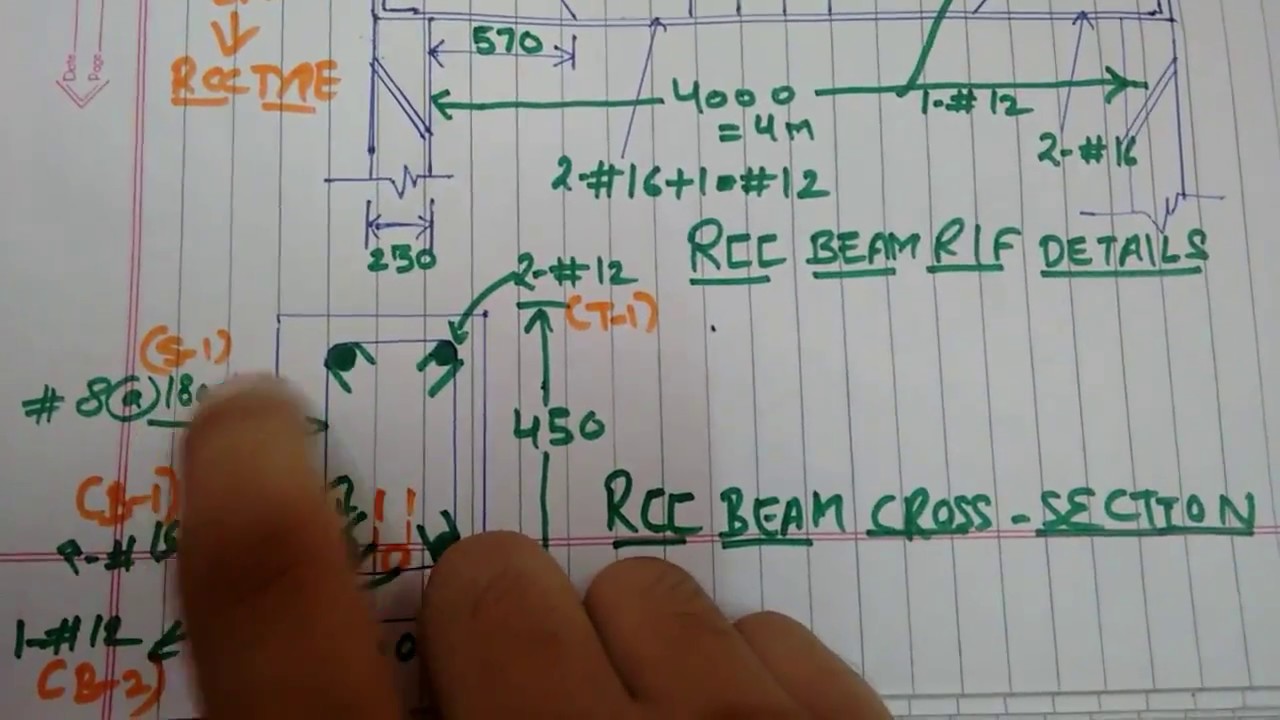 Date
Page
RCC TYPE
570
4000
= 4m
1-#12
2-#16
2-#16+1-#12
250
RCC BEAM R/F DETAILS
2-#12
(T-1)
(S-1)
# 8@18
450
(B-1)
RCC BEAM CROSS-SECTION
1-#12
(B-2)